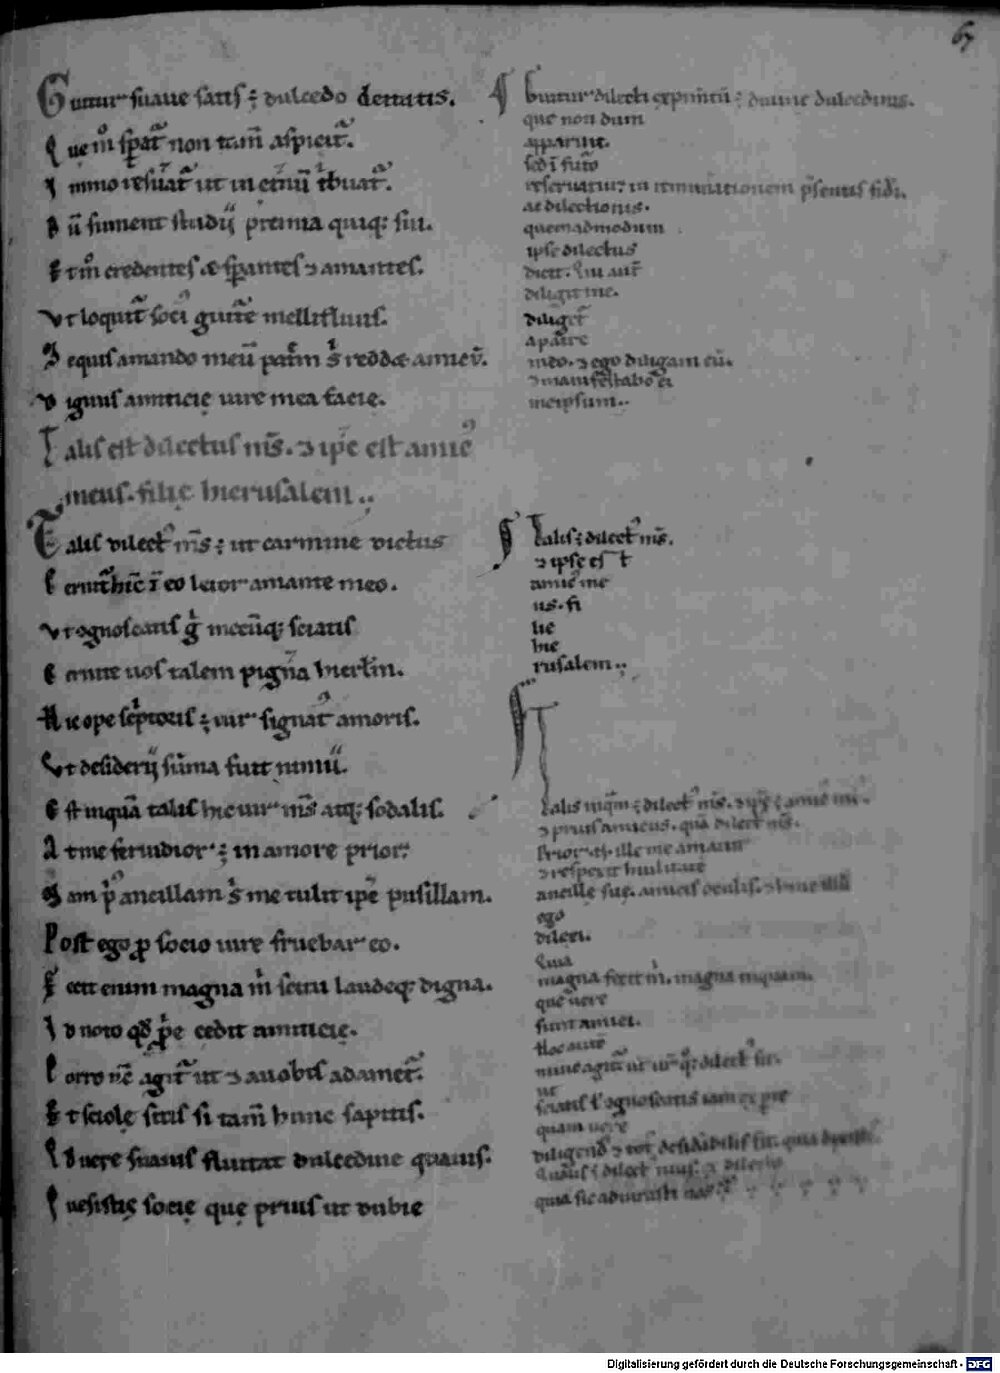 67
Guttur suaue satis ÷ dulcedo deitatis.
Que m̊ sp̄at᷑ non tam̄ aspicit᷑.
Immo reſuat᷑ ut in et̄nū tͥbuat᷑.
Dū ſument ſtudij premia quiqꝫ ſui.
Et m̄ credentes & ſperantes ⁊ amantes.
Vt loquit᷑ ſoci gutt᷑e mellifluuſ.
Sequiſ amando meū pat᷑m sͥ reddæ amicū.
Dignuſ amiticię uire mea facie.
Taliſ eſt dilectuſ mſ̄. ⁊ ipſe eſt amicꝰ
meuſ. filię hieruſalem..
Taliſ dilectꝰ mſ̄ ÷ ut carmine dictus
Cernit᷑ hic ī eo letor amante meo.
Vt ognoſcatiſ gͥ mecūqꝫ ſciatis
Cernite uos talem pignͣa hierl̄m.
Ac ope ſcͥptoriſ ÷ uir ſignat᷑ amoriſ.
Vt deſiderij ſūma fuit nimiū.
Eſt inquā taliſ hic uir mſ̄ atqꝫ ſodaliſ.
At me feruidior ÷ in amore prior.
Nam pͥꝰ ancillam sͥ me tulit ipſe puſillam.
Poſt ego ꝓ ſocio uire fruebar eo.
Fecit enim magna mͥ ſcitu laudeqꝫ digna.
Id noto qđ p̄e cedit amiticię.
Porro nc̄ agit᷑ ut ⁊ auobiſ adamet᷑.
Et ſciolę ſitiſ ſi tam̄ hunc ſapitiſ.
Id uere ſuauiſ fluitat dulcedine quauiſ.
Queſiſtiſ ſocię quę priuſ ut dubie
Guttur dilecti exprimit᷑ ÷ diuine dulcediniſ.
que non dum
apparuit.
ſed ī fut᷑o
reſeruatur in remunationem p̄ſentiſ fidei.
ac dilectioniſ.
quemadmodum
ipſe dilectuſ
dicit. Qui aut̄
diligit me.
diliget᷑
a pat᷑e
meo. ⁊ ego diligam eū.
⁊ manifeſtabo ei
meipſum..
Taliſ ÷ dilectꝰ mſ̄.
⁊ ipſe eſt
amicꝰ me
us. fi
lie
hie
ruſalem..
Taliſ inqm̄ ÷ dilectꝰ mſ̄. ⁊ ipſe ÷ amicꝰ mſ̄.
⁊ priuſ amicuſ. quā dilectꝰ mſ̄.
Prior ille me amauit
⁊ reſpexit humilitatē
ancille ſuę. amiciſ oculiſ. ⁊ hunc
ego
dilexi.
Quia
magna fecit mͥ. magna inquam.
que uere
ſunt amici.
Hoc autē
nunc agit᷑ ut dilectꝰ ſit.
ut
ſciatiſ ⁊ ognoſcatiſ iam ex p̄te
quam uere
diligendꝰ ⁊ totꝰ deſidabiliſ ſit. quia
dilectꝰ
quia ſic adiuraſti noſ.
Digitalisierung gefördert durch die Deutsche Forschungsgemeinschaft - DFG